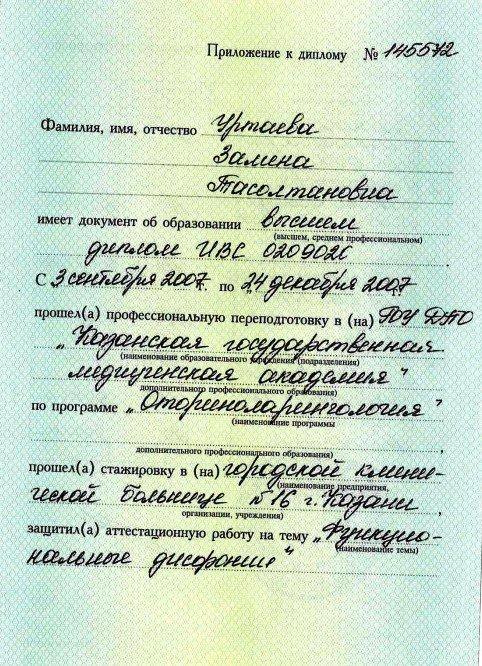 Приложение к диплому № 145572
Фамилия, имя, отчество Уртаева
Замина
Тасолтановна
имеет документ об образовании высшем
(высшем, среднем профессиональном)
диплом ИВС 0209026
С 3 сентября 2007 г. по „24 декабря 2007 г.
прошел(а) профессиональную переподготовку в (на) ГОУ ДПО
„Казанская государственная
(наименование образовательного учреждения (подразделения)
медицинская академия"
дополнительного профессионального образования)
по программе „Оториноларингология"
(наименование программы
дополнительного профессионального образования)
прошел(а) стажировку в (на) городской клини-
(наименование предприятия,
ческой больнице №16 г. Казани,
организации, учреждения)
защитил(а) аттестационную работу на тему „Функцио-
(наименование темы)
нальные дисфонии"